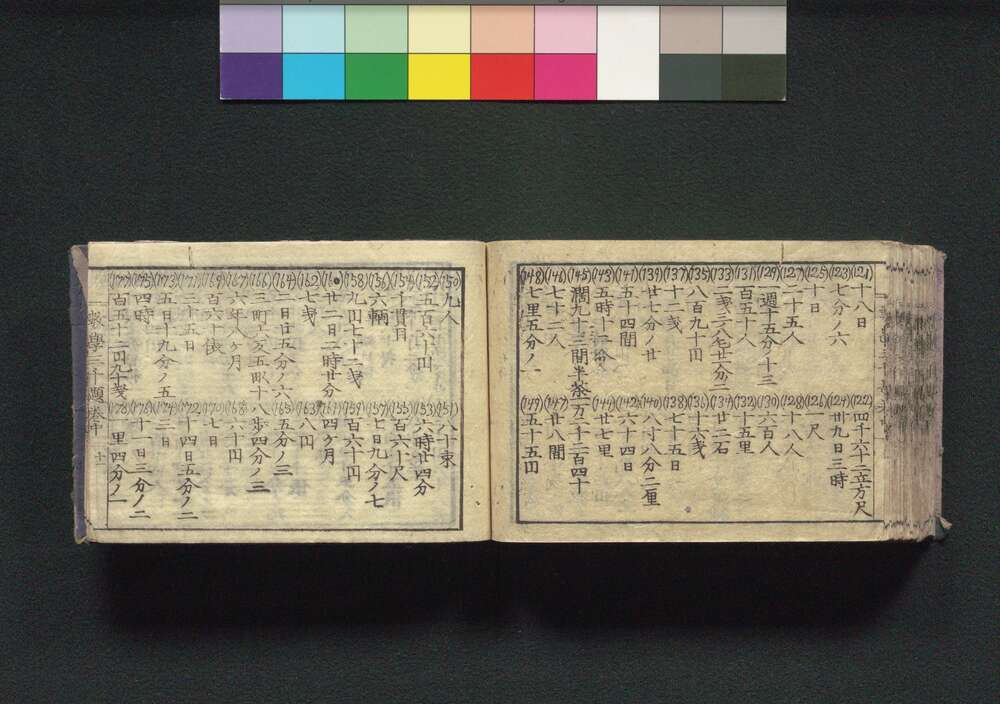 (121) 十八日
(122) 四千六十二立方尺
(123) 七分ノ六
(124) 廿九日三時
(125) 十日
(126) 二尺
(127) 二十五人
(128) 十八人
(129) 一週十五分ノ十三
(130) 六百人
(131) 百五十人
(132) 十五里
(133)
(134) 廿二石
(135) 八百九十円
(136) 十六歳
(137) 十二歳
(138) 七十五日
(139) 廿七分ノ廿
(140) 八寸八分二厘
(141) 五十四間
(142) 六十四日
(143) 五時十二
(144) 廿七里
(145) 濶九十三間半
(146) 七十二人
(147) 廿八間
(148) 七里五分ノ一
(149) 五十五円
(150) 九人
(151) 八十束
(152) 五百六十円
(153) 六時廿四分
(154) 十貫目
(155) 百六十尺
(156) 六輌
(157) 七日九分ノ七
(158) 九円七十二銭
(159) 百六十円
廿二日二時廿分
(161) 四ケ月
(162) 七歳
(163) 八円
(164) 二日廿五分ノ六
(165) 五分ノ三
(166) 三町二反五畝十八歩四分ノ三
(167) 六年八ケ月
(168) 六十円
(169) 百六十俵
(170) 七日
(171) 三十五日
(172) 十四日五分ノ二
(173) 五日十九分ノ五
(174) 二日
(175) 四時
(176) 十一日三分ノ二
(177) 百五十二円九十銭
(178) 一里四分ノ一
數學三千題卷中 十一